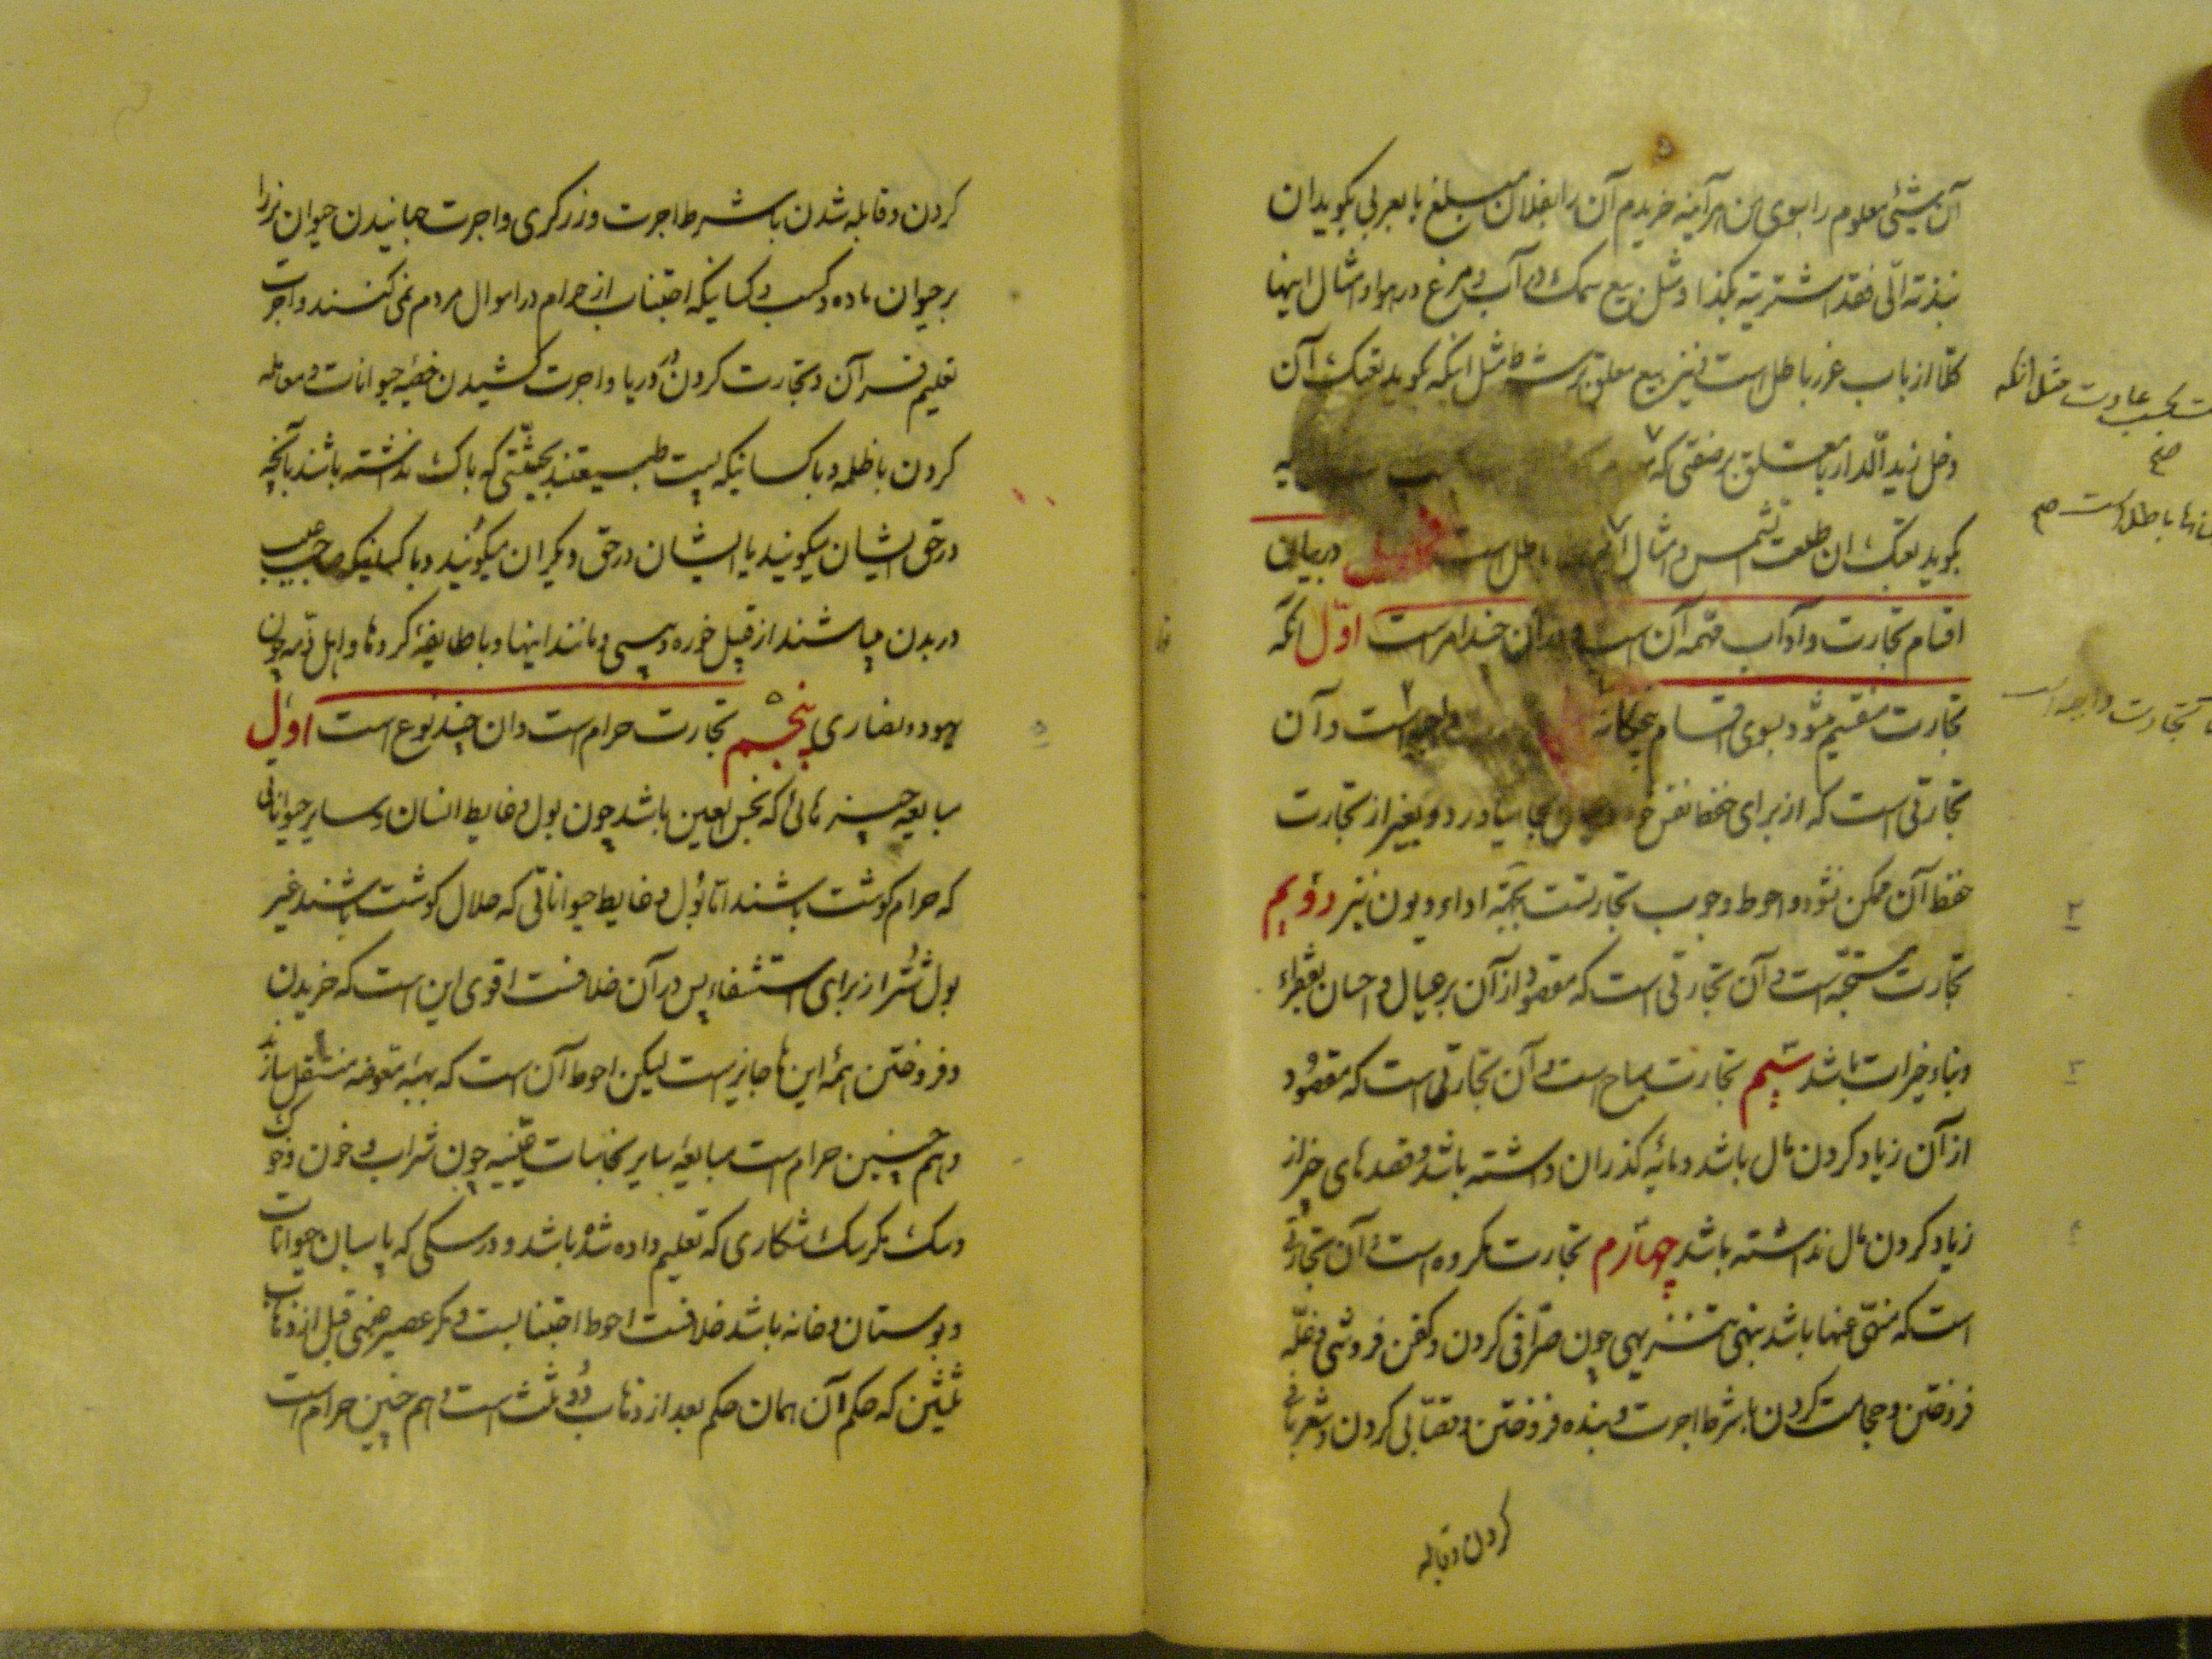 آن شیئی معلوم را بسوی من هرآینه خریدم آن را بفلان مبلغ یا بعربی بگوید ان
نبذته الّی فقد اشتریته بکذا و مثل بیع سمک در آب و مرغ در هوا و امثال اینها
کلّا از باب غرر باطل است و نیز بیع معلق بر شرط مثل اینکه گوید بعتک آن
دخل زید الّدار یا معلق بر صفتی که
گوید بعتک ان طلعت الشمس و امثال باطل است در بیان
اقسام تجارت و آداب و تتمه آن است و در آن چند امر است اوّل آنکه
تجارت منقسم میشود بسوی اقسام پنجگانه واجبست و آن
تجارتی است که از برای حفظ نفس بجا بیاورد و بغیر از تجارت
حفظ آن ممکن نشود و احوط وجوب تجارتست بجهّة اداء دیون نیز دویم
تجارت مستحبّه است و آن تجارتی است که مقصود از آن بر عیال و احسان بفقراء
و بناء خیرات باشد سیّم تجارت مباح است و آن تجارتی است که مقصود
از آن زیاد کردن مال باشد و مایهٔ گذران داشته باشد و قصدهای خیر از
زیاد کردن مال نداشته باشد چهارم تجارت مکروه است و آن تجارتی
است که منهّی عنها باشد بنهی تنزیهی چون صرّافی کردن و کفن فروشی و غلّه
فروختن و حجامت کردن با شرط اجرت و بنده فروختن و قصّابی کردن و شعربافی
کردن و قابله
بحسب عادت مثل آنکه
صح
اینها باطل است صح
تجارت واجبه است
۲
۳
۴
کردن و قابله شدن با شرط اجرت و زرگری و اجرت جهانیدن حیوان نر را
بر حیوان ماده و کسب کسانیکه اجتناب از حرام در اموال مردم نمی کنند و اجرت
تعلیم قرآن و تجارت کردن در دریا و اجرت کشیدن خصیهٔ حیوانات و معامله
کردن با ظلمه و با کسانیکه پست طبیعتند بحیثّیتی که باک نداشته باشند بآنچه
در حق ایشان میگویند یا ایشان در حق دیگران میگویند و با کسانیکه صاحب عیب
در بدن میباشند از قبیل خوره و پیسی و مانند اینها و با طایفهٔ کردها و اهل ذمه چون
یهود و نصاری پنجّم تجارت حرام است و ان چند نوع است اوّل
مبایعه چیزهائی که نجس العین باشد چون بول و غایط انسان و سایر حیواناتی
که حرام گوشت باشند امّا بول و غایط حیواناتی که حلال گوشت باشند غیر
بول شتر از برای استشفاء پس در آن خلافست اقوی این است که خریدن
و فروختن همهٔ این ها جایز است لیکن احوط آن است که بهبهٔ معوضه منتقل سازند
و هم چنین حرام است مبایعهٔ سایر نجاسات عینّیه چون شراب و خون و خوک
و سگ مگر سگ شکاری که تعلیم داده شده باشد و در سگی که پاسبان حیوانات
و بوستان و خانه باشد خلافست احوط اجتنابست و مگر عصیر عنبی قبل از ذهاب
ثلثین که حکم آن همان حکم بعد از ذهاب دو ثلث است و هم چنین حرام است
۵